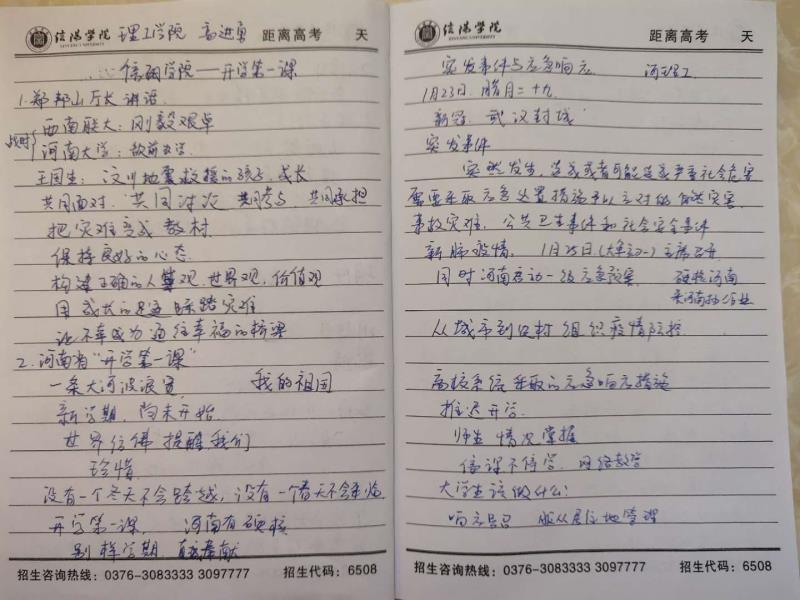 信阳学院 理工学院 高进勇 距离高考 天
XINYANG UNIVERSITY
信阳学院——开学第一课
1.郑邦山厅长讲话
战时 西南联大：刚毅艰卓
河南大学：敌前办学
王国生：汶川地震救援的孩子，成长
共同面对 共同讨次 共同参与 共同承担
把灾难变成教材
保持良好的心态
构建正确的人生观、世界观，价值观
用成长的足迹踩踏灾难
让不幸成为通往幸福的桥梁
2.河南省“开学第一课”
一条大河波浪宽 我的祖国
新学期，尚未开始
世界仿佛提醒我们
珍惜
没有一个冬天不会跨越，没有一个春天不会来临
开学第一课， 河南有硬核
别样学期，真我奉献
招生咨询热线：0376-3083333 3097777 招生代码：6508
信阳学院 距离高考 天
XINYANG UNIVERSITY
突发事件与应急响应 河理工
1月23日，腊月二十九
新冠 武汉封城
突发事件
突然发生，造成或者可能造成严重社会危害
需要采取应急处置措施予以应对的自然灾害
事故灾难，公共卫生事件和社会安全事件
新肺疫情， 1月25日(大年初一)主席召开
同时河南启动一级应急预案 硬核河南
从城市到农村 组织疫情防控
高校系统采取的应急响应措施
推迟开学
师生情况掌握
停课不停学，网络教学
大学生该做什么？
响应号召 服从居住地管理
招生咨询热线：0376-3083333 3097777 招生代码：6508